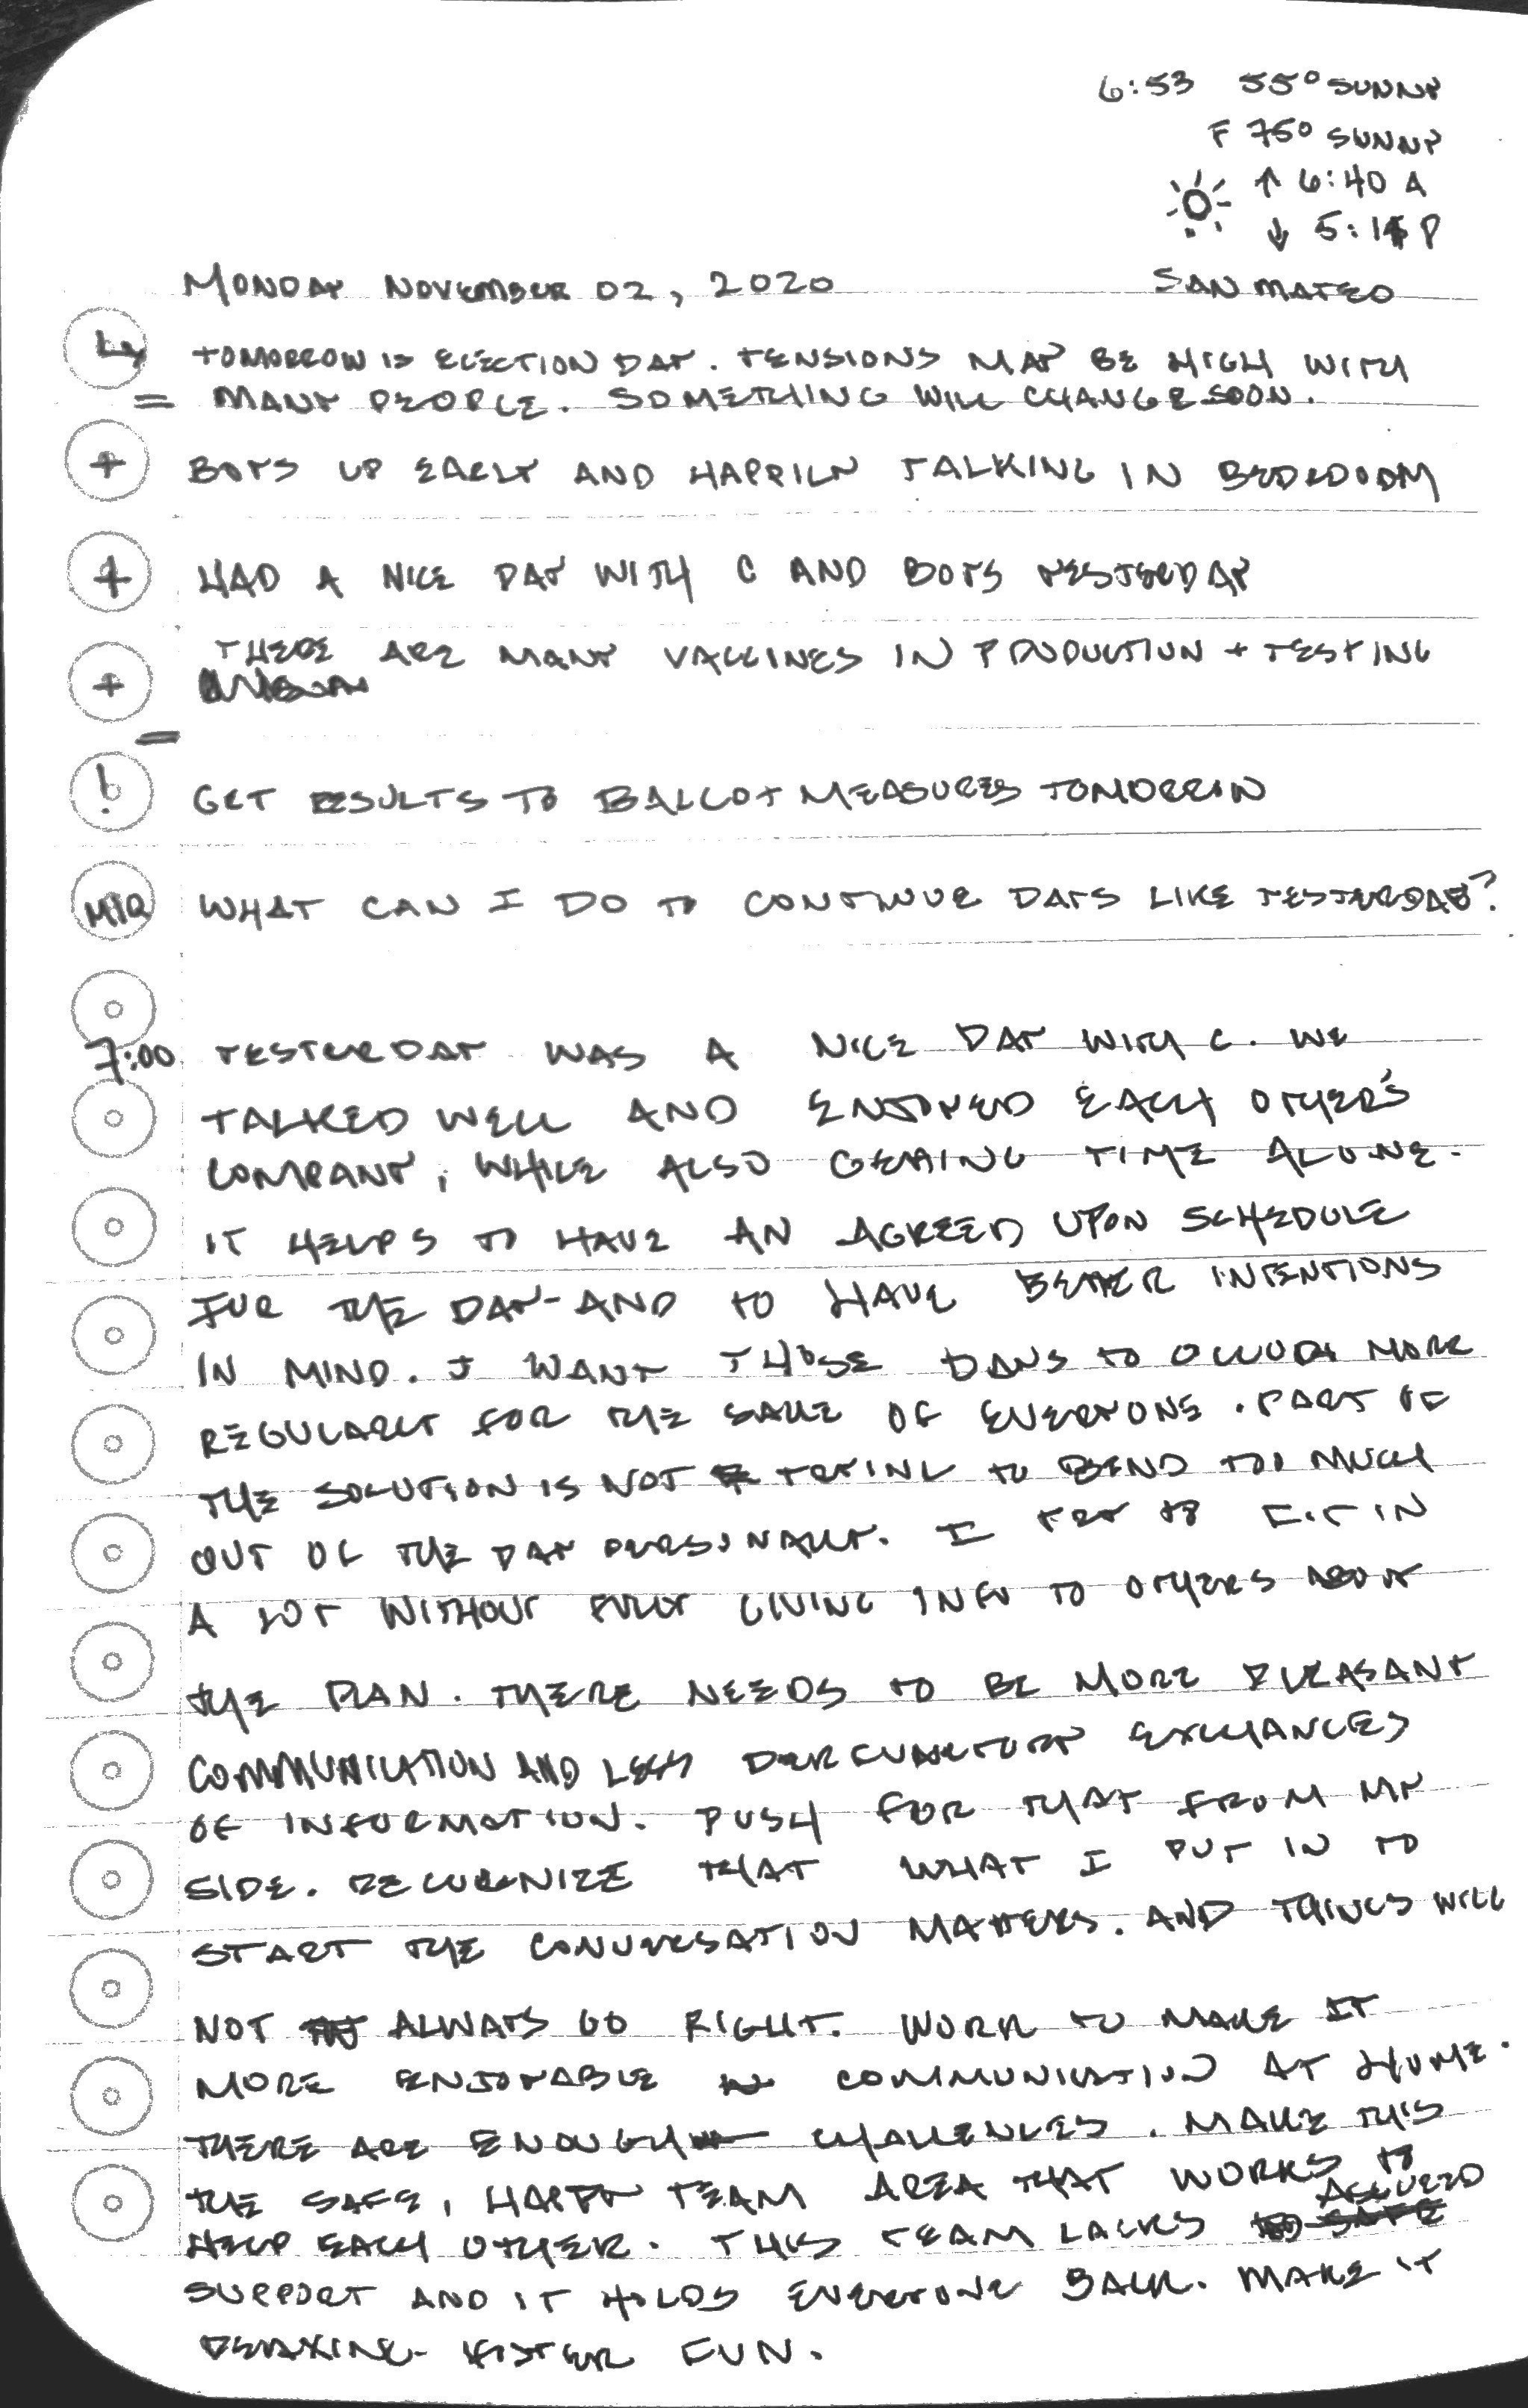 6:53 55° SUNNY
F 75° SUNNY
↑ 6:40 A
↓ 5:15 P
MONDAY NOVEMBER 02, 2020 SAN MATEO
TOMORROW IS ELECTION DAY. TENSIONS MAY BE HIGH WITH
= MANY PEOPLE. SOMETHING WILL CHANGE SOON.
+ BOYS UP EARLY AND HAPPILY TALKING IN BEDROOM
+ HAD A NICE DAY WITH C AND BOYS YESTERDAY
+ THERE ARE MANY VACCINES IN PRODUCTION + TESTING
=
! GET RESULTS TO BALLOT MEASURES TOMORROW
MIQ WHAT CAN I DO TO CONTINUE DAYS LIKE YESTERDAY?
7:00 YESTERDAY WAS A NICE DAY WITH C. WE
TALKED WELL AND ENJOYED EACH OTHER'S
COMPANY, WHILE ALSO GETTING TIME ALONE.
IT HELPS TO HAVE AN AGREED UPON SCHEDULE
FOR THE DAY - AND TO HAVE BETTER INTENTIONS
IN MIND. I WANT THOSE DAYS TO OCCUR MORE
REGULARLY FOR THE SAKE OF EVERYONE. PART OF
THE SOLUTION IS NOT TRYING TO BEND TOO MUCH
OUT OF THE DAY PERSONALLY. I TRY TO FIT IN
A LOT WITHOUT FULLY GIVING INFO TO OTHERS ABOUT
THE PLAN. THERE NEEDS TO BE MORE PLEASANT
COMMUNICATION AND LESS EXCHANGES
OF INFORMATION. PUSH FOR THAT FROM MY
SIDE. RECOGNIZE THAT WHAT I PUT IN TO
START THE CONVERSATION MATTERS. AND THINGS WILL
NOT ALWAYS GO RIGHT. WORK TO MAKE IT
MORE ENJOYABLE COMMUNICATION AT HOME.
THERE ARE ENOUGH CHALLENGES. MAKE THIS
THE SAFE, HAPPY TEAM AREA THAT WORKS TO
HELP EACH OTHER. THIS TEAM LACKS ASSURED
SUPPORT AND IT HOLDS EVERYONE BACK. MAKE IT
RELAXING. FOSTER FUN.